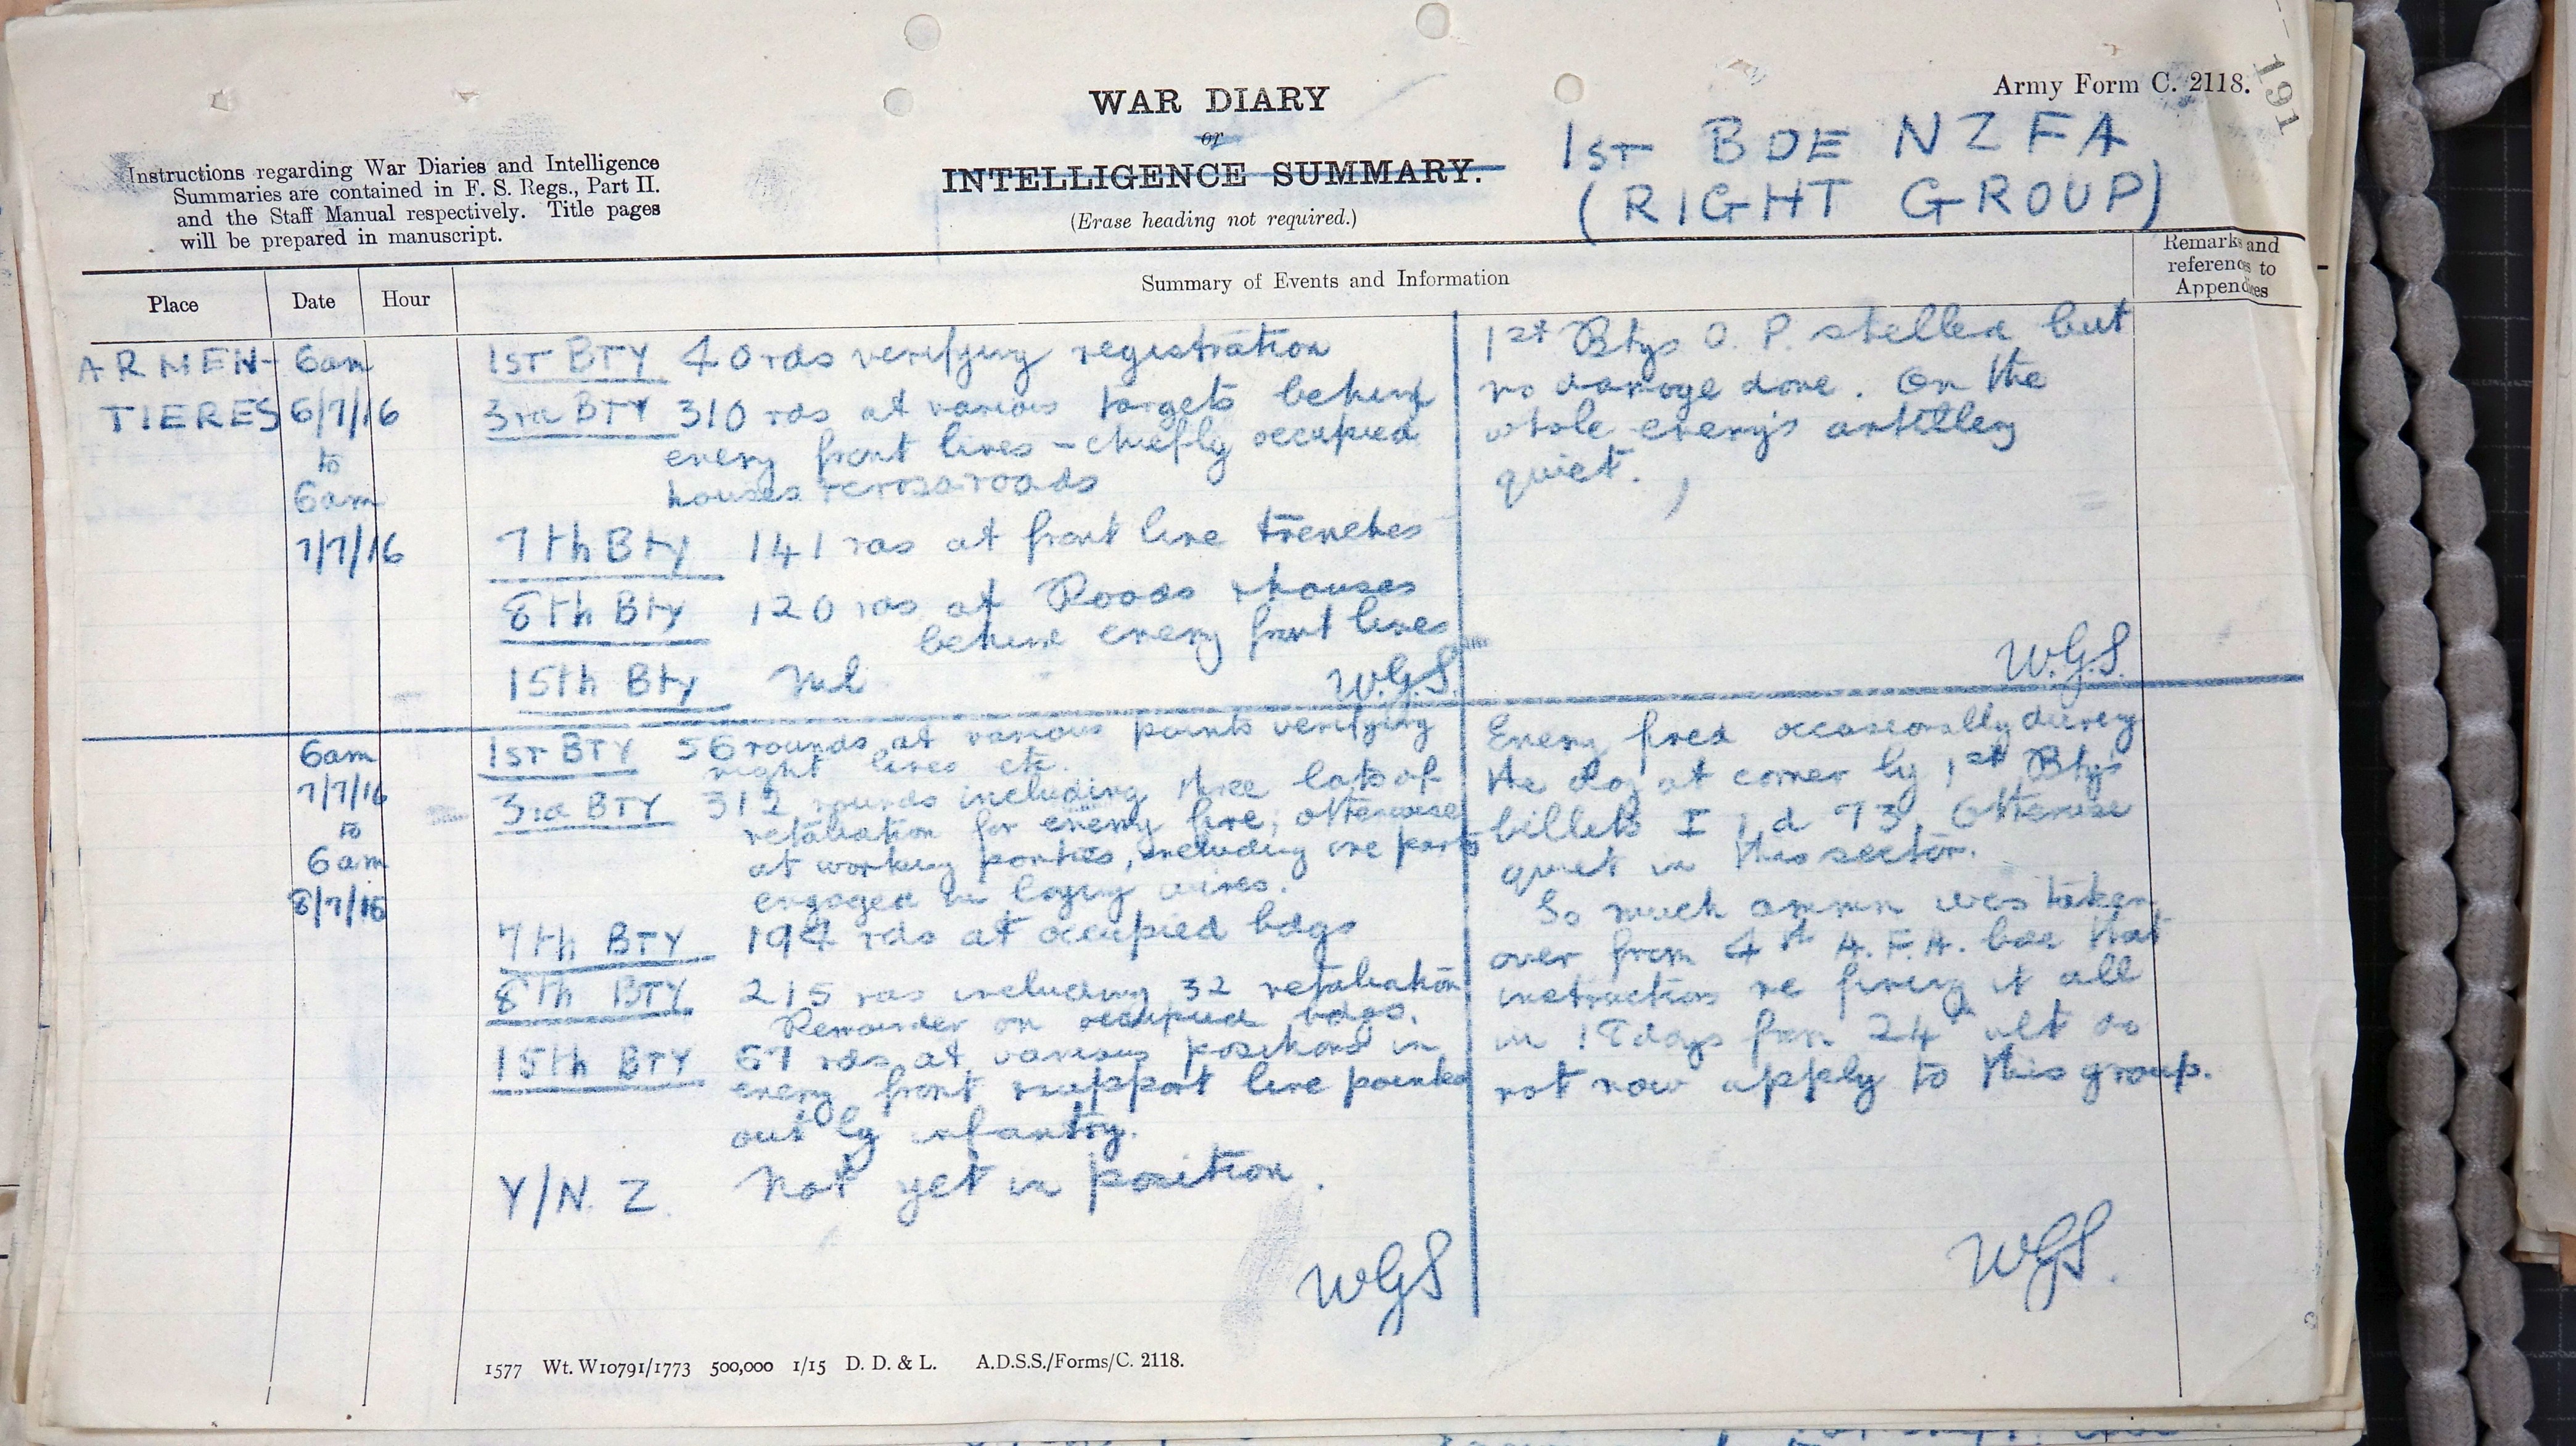 WAR DIARY
or
INTELLIGENCE SUMMARY.
(Erase heading not required.)
Army Form C. 2118.
191
1ST BDE NZFA
(RIGHT GROUP)
Instructions regarding War Diaries and Intelligence
Summaries are contained in F. S. Regs., Part II.
and the Staff Manual respectively. Title pages
will be prepared in manuscript.
Place
Date
Hour
Summary of Events and Information
Remarks and
references to
Appendices
ARMEN-
TIERES
6am
6/7/16
to
6am
7/7/16
1ST BTY 40 rds verifying registration
3rd BTY 310 rds at various targets behind
enemy front lines - chiefly occupied
houses & crossroads
7th Bty 141 rds at front line trenches
8th Bty 120 rds at Roads & houses
behind enemy front lines
15th Bty Nil
W.G.S.
1st Btys O. P. shelled but
no damage done. On the
whole enemy's artillery
quiet.
W.G.S.
6am
7/7/16
to
6am
8/7/16
1ST BTY 56 rounds at various points verifying
night lines etc.
3rd BTY 312 rounds including three lots of
retaliation for enemy fire; otherwise
at working parties, including one party
engaged in laying wires.
7th BTY 194 rds at occupied bdgs
8th BTY 215 rds including 32 retaliation
Remainder on occupied bdgs.
15th BTY 67 rds at various positions in
enemy front & support line pointed
out by infantry.
Y/N. Z. Not yet in position.
WGS
Enemy fired occasionally during
the day at corner by 1st Bty's
billets I 1 d 73. Otherwise
quiet in this sector.
So much ammn was taken
over from 4th A.F.A. bde that
instructions re firing it all
in 18 days from 24 ult do
not now apply to this group.
WGS.
1577 Wt. W10791/1773 500,000 1/15 D. D. & L. A.D.S.S./Forms/C. 2118.